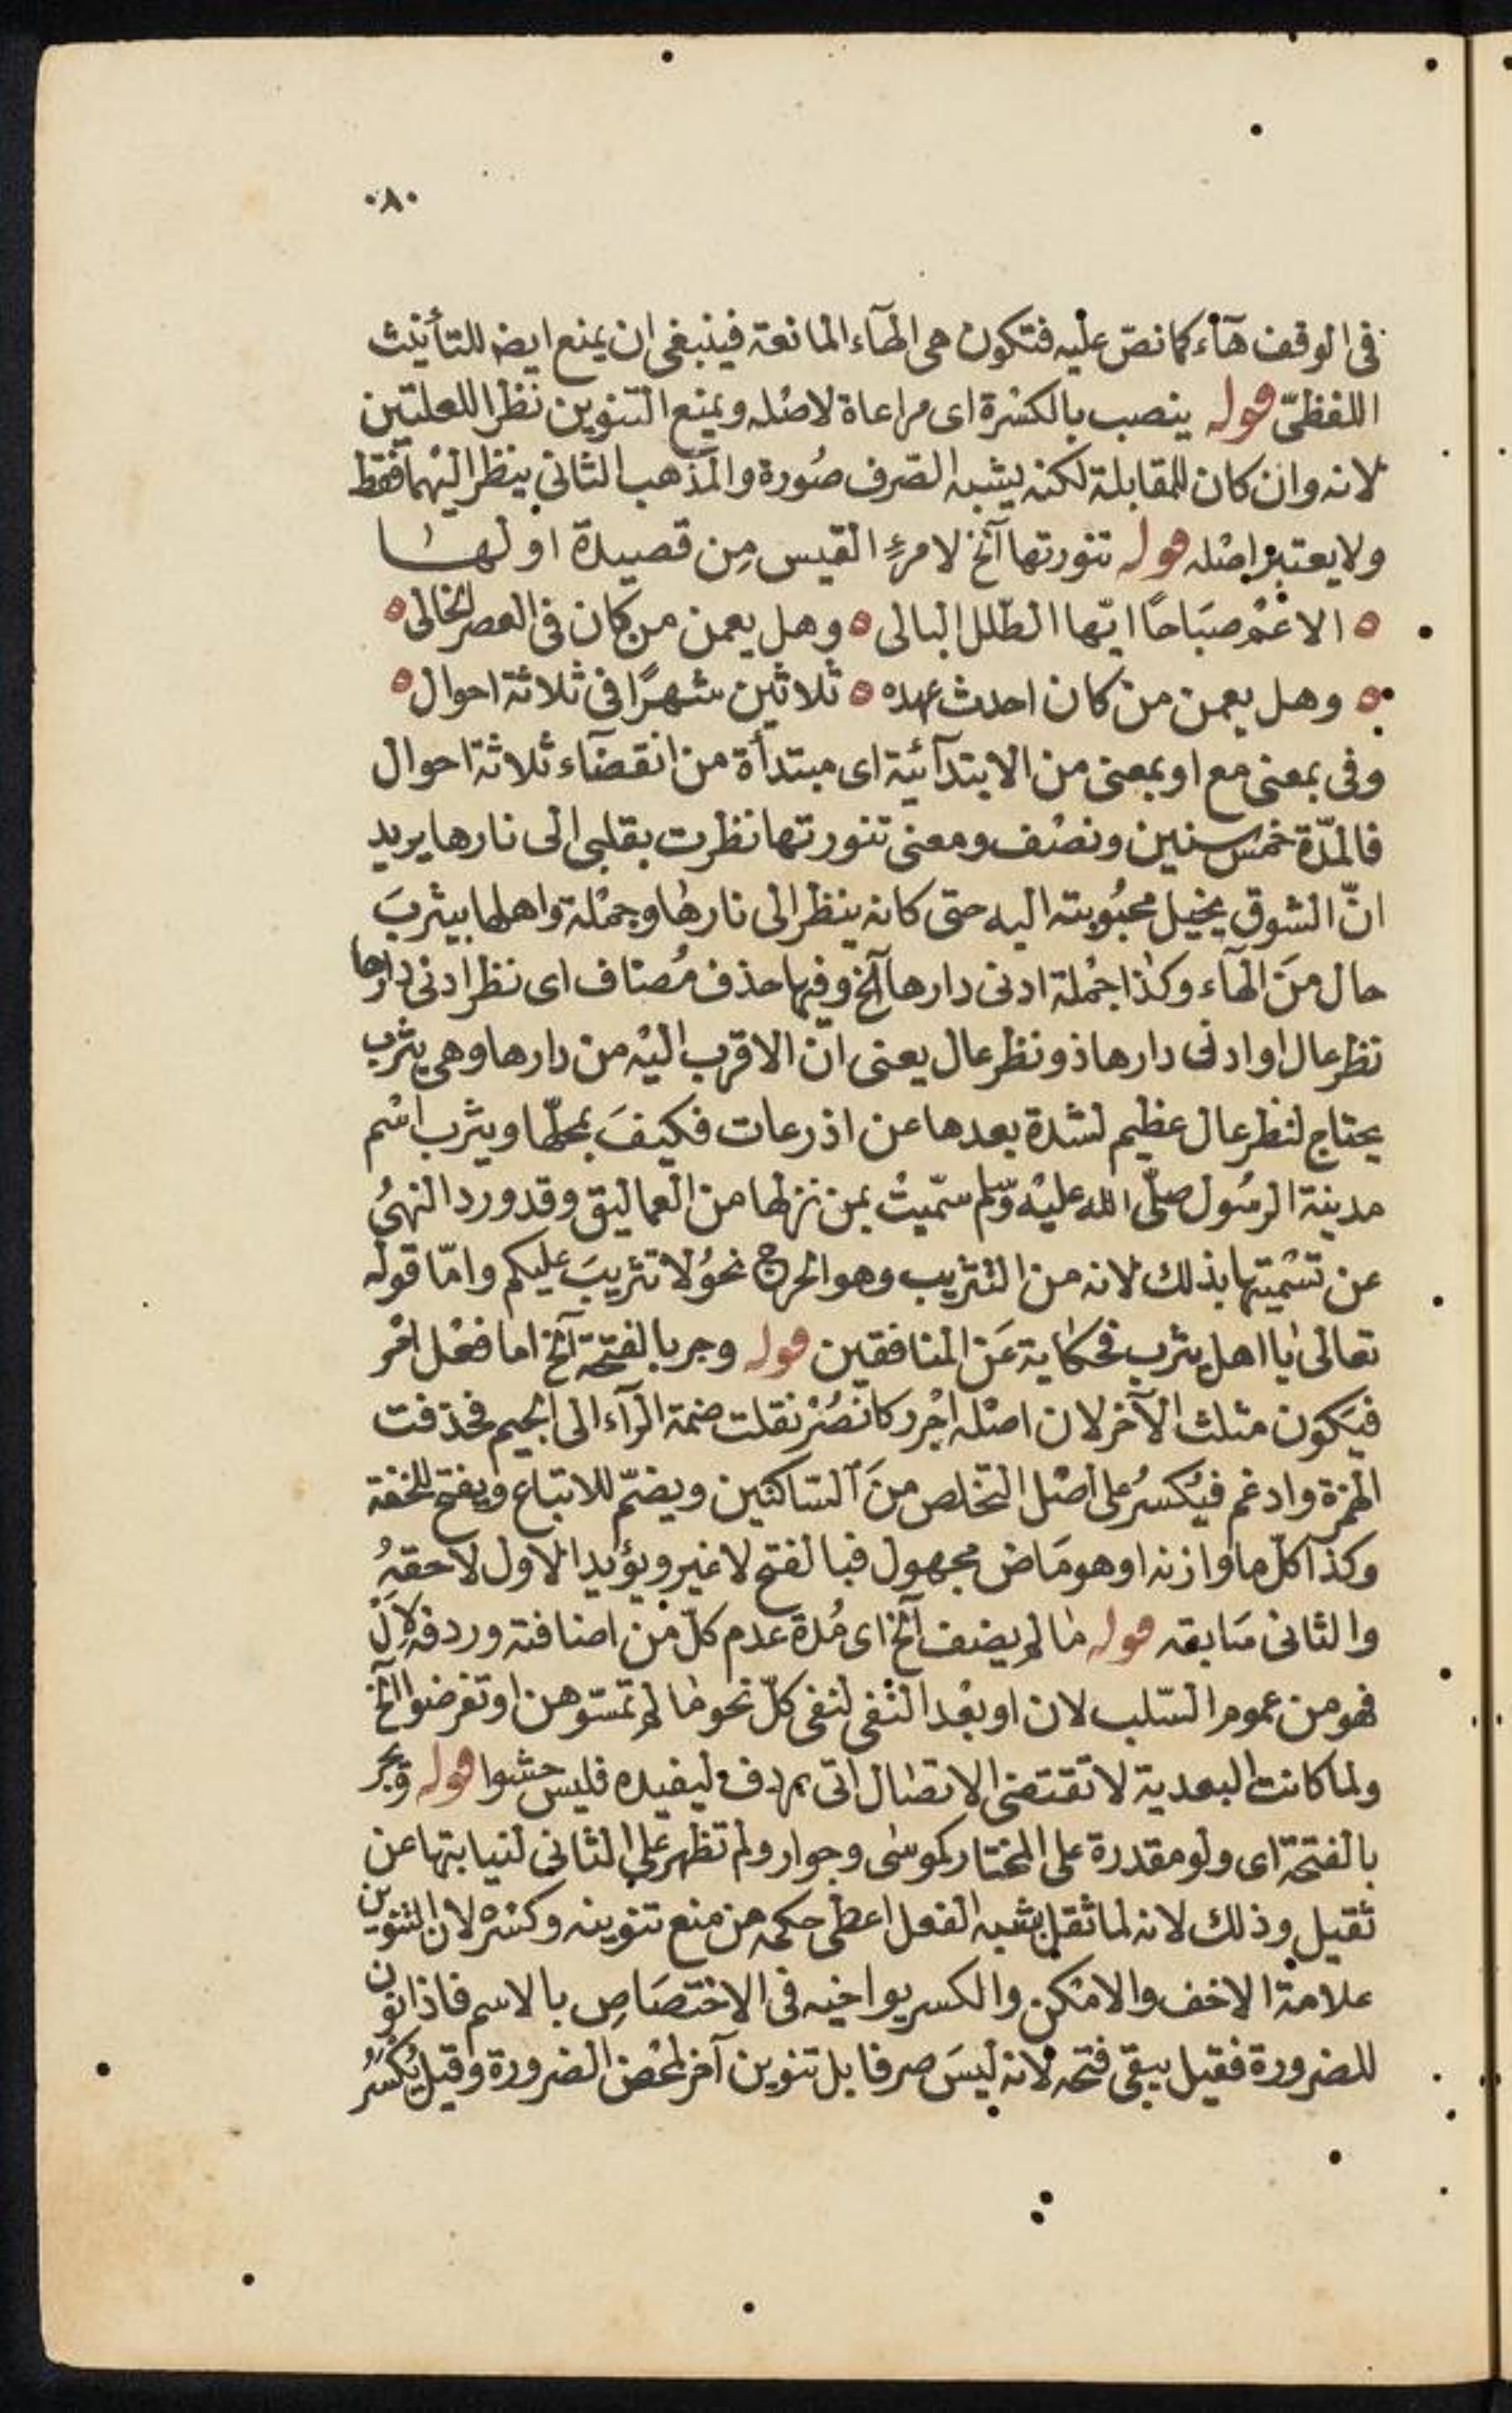 ٠٨٠
فى الوقف هآء كما نص عليه فتكون هى الهآء المانعة فينبغى ان يمنع ايضا للتأنيث
اللفظىّ قوله ينصب بالكسْرة اى مراعاة لاصْله ويمنع التنوين نظرا للعلتين
لانه وان كان للمقابلة لكنه يشبه الصّرف صُورة والمذهب الثانى ينظر اليْهما فقط
ولا يعتبر اصْله قوله تنورتها آلخ لامرئ القيس مِن قصيدة اولها
ه الا عمْ صبَاحًا ايّها الطّلل البالى ه وهل يعمن من كان فى العصر الخالى ه
ه وهل يعمن من كان احدث عهده ه ثلاثين شهرًا فى ثلاثة احوال ه
وفى بمعنى مع او بمعنى من الابتدآئية اى مبتدأة من انقضآء ثلاثة احوال
فالمدّة خمس سنين ونصْف ومعنى تنورتها نظرت بقلبى الى نارها يريد
انّ الشوق يخيل محبُوبته اليه حتى كانه ينظر الى نارها وجمْلة واهلها بيثربَ
حال منَ الهآء وكذا جمْلة ادنى دارها آلخ وفيها حذف مُضاف اى نظر ادنى دارها
نظر عال او ادنى دارها ذو نظر عال يعنى انّ الاقرب اليْه من دارها وهى يثرب
يحتاج لنظر عال عظيم لشدة بعدها عن اذرعات فكيفَ بمحلّها ويثرب اسْم
مدينة الرسُول صلّى الله عليْه وسّلم سمّيتْ بمن نزلها من العماليق وقد ورد النهىُ
عن تسْميتها بذلك لانه من التثريب وهو الحرج نحوُ لا تثريبَ عليكم وامّا قوله
تعالى يا اهل يثرب فحكاية عَن المنافقين قوله وجر بالفتحة آلخ اما فعْل امْر
فيَكون مثلث الآخر لان اصْله اجْرر كانْصُرْ نقلت ضمة الرآء الى الجيم فحذفت
الهمزة وادغم فيُكسرُ على اصْل التخلص منَ الساكنين ويضمّ للاتباع ويفتح للخفة
وكذا كلّ ما وازنه او هو مَاض مجهول فبالفتح لا غير ويؤيد الاول لاحقهُ
والثانى سَابقه قوله مَا لم يضف آلخ اى مُدة عدم كلّ منْ اضافته وردفه لاِلْ
فهو من عموم السّلب لان او بعْد النْفى لنفى كلّ نحو مَا لم تمسّوهن او تفرضوا آلخ
ولما كانت البعدية لا تقتضى الاتصال اتى بردف ليفيده فليس حشوا قوله وجر
بالفتحة اى ولو مقدرة على المختار كموسٰى وجوار ولم تظهر على الثانى لنيابتها عن
ثقيل وذلك لانه لما ثقل بشبه الفعل اعطى حكمه من منع تنوينه وكسْره لان التنوين
علامة الاخف والامْكن والكسر يواخيه فى الاختصَاصِ بالاسم فاذا نون
للضرورة فقيل يبقى فتحه لانه ليسَ صرفا بل تنوين آخر لمحْض الضرورة وقيل يُكسَرُ